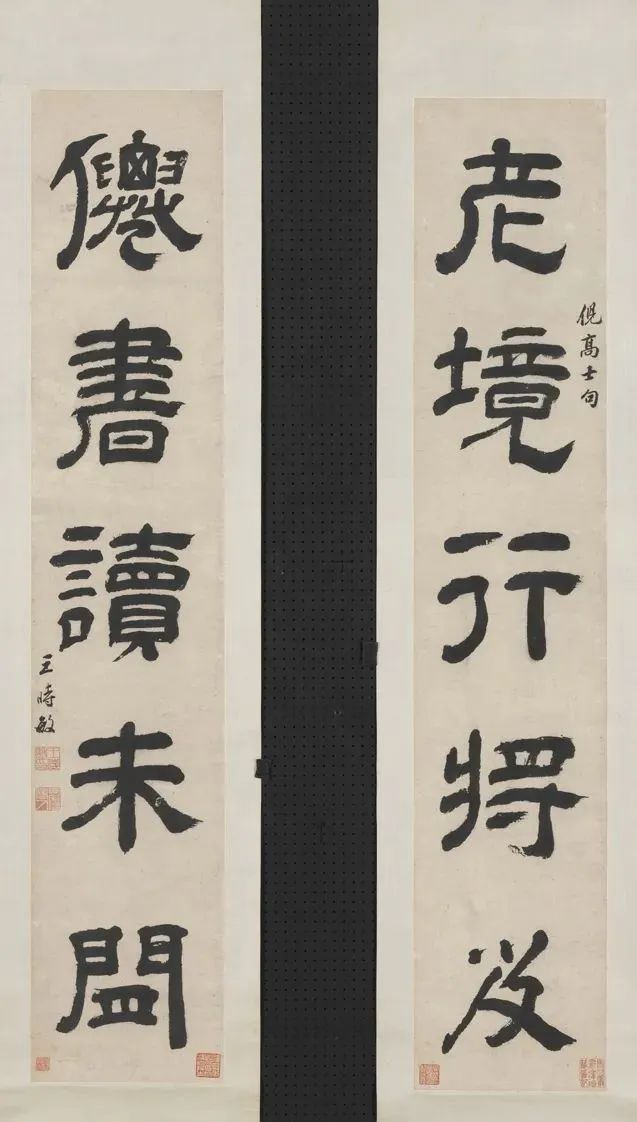 老境行將及
倪高士句
僊書讀未闔
王時敏